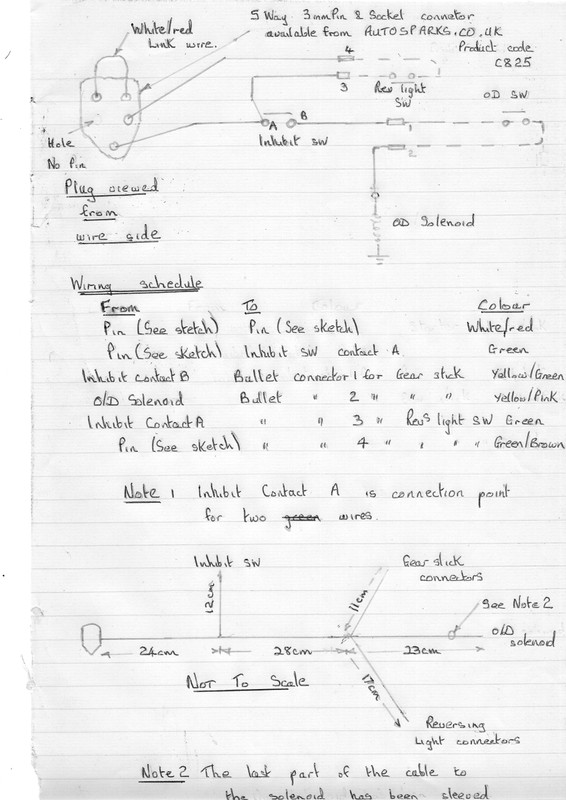 5 Way 3mm Pin & Socket connetor
White/red
Link wire.
available from AUTOSPARKS.CO.UK
Product code
C825
4
3
Rev light
SW
OD SW
A
B
Inhibit SW
1
2
Hole
No Pin
Plug viewed
from
wire side
OD Solenoid
Wiring schedule
From To Colour
Pin (See sketch) Pin (See sketch) White/red
Pin (See sketch) Inhibit SW contact A Green
Inhibit Contact B Bullet connector 1 for Gear stick Yellow/Green
O/D Solenoid Bullet " 2 " " " Yellow/Pink
Inhibit Contact A " " 3 " Revs light SW Green
Pin (See sketch) " " 4 " " " " Green/Brown
Note 1 Inhibit Contact A is connection point
for two green wires.
Inhibit SW
Gear stick
connectors
12cm
11cm
See Note 2
O/D
solenoid
24cm
28cm
23cm
17cm
Not To Scale
Reversing
Light connectors
Note 2 The last part of the cable to
the solenoid has been sleeved